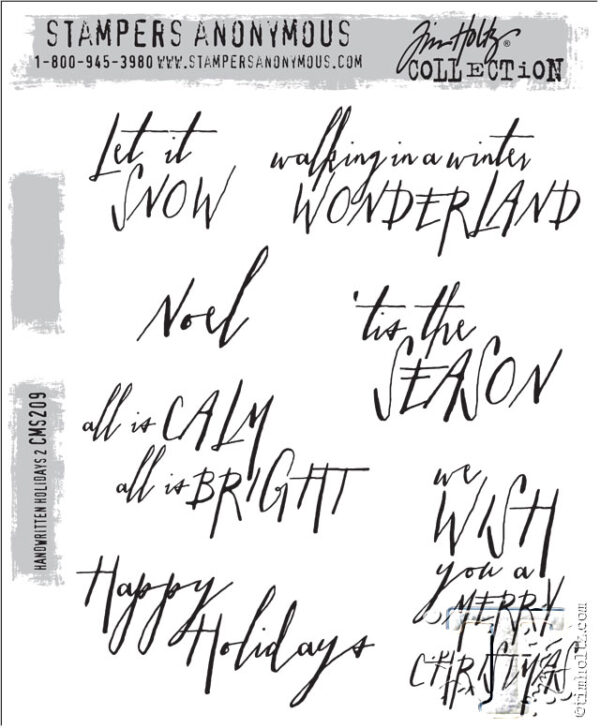 STAMPERS ANONYMOUS
1-800-945-3980 WWW.STAMPERSANONYMOUS.COM
Tim Holtz®
COLLECTiON
Let it
SNOW
walking in a winter
WONDERLAND
Noel
'tis the
SEASON
all is CALM
all is BRIGHT
we
WISH
you a
MERRY
CHRISTMAS
Happy
Holidays
HANDWRITTEN HOLIDAYS 2 CMS209
©timholtz.com